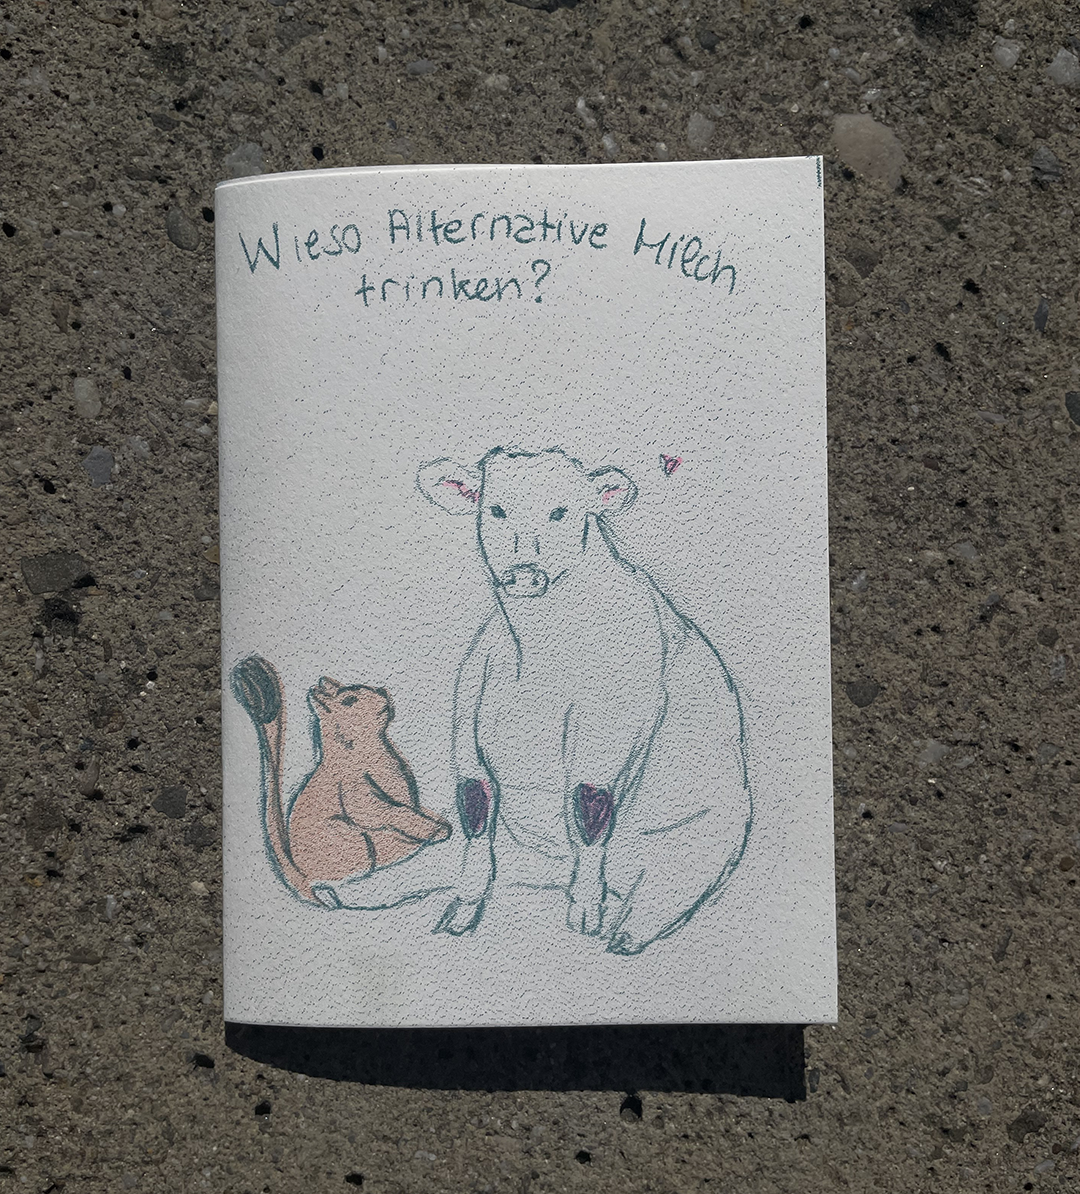 Wieso Alternative Milch
trinken?